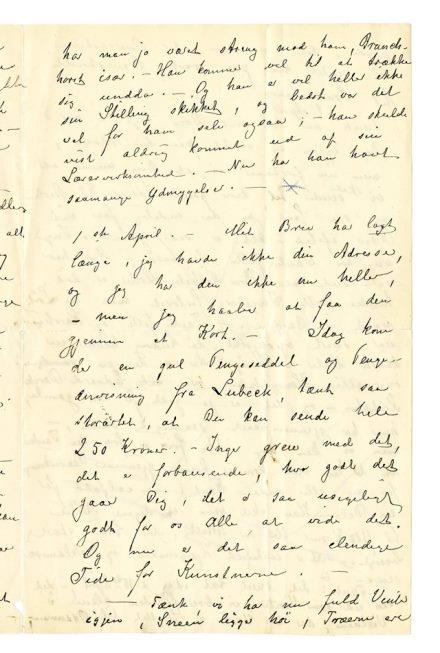 har man jo været streng mod ham, Brands-
horst især. – Han kommer vel til at trække
sig undda. – Og han er vel heller ikke
sin Stilling skikket, og bedst var det
vel for ham selv ogsaa; – han skulde
vist aldrig kommet ud af sin
Lærervirksomhed. – Nu har han havt
saamange Ydmygelser. –
1ste April. – Mit Brev har lagt
længe, jeg havde ikke din Adresse,
og jeg har den ikke nu heller,
– men jeg haaber at faa den
gjennem et Kort. – Idag kom
de en gul Pengeseddel og Penge-
anvisning fra Lubeck, tænk saa
storartet, at Du kan sende hele
250 Kroner. – Inger grew med det,
det er forbausende, hvor godt det
gaar Dig, det er saa usigeligt
godt for os Alle, at vide det.
Og nu er det saa elendige
Tider for Kunstnerne. –
– Tænk vi ha nu fuld Vinter
igjen, Sneen ligger høi, Træerne ere